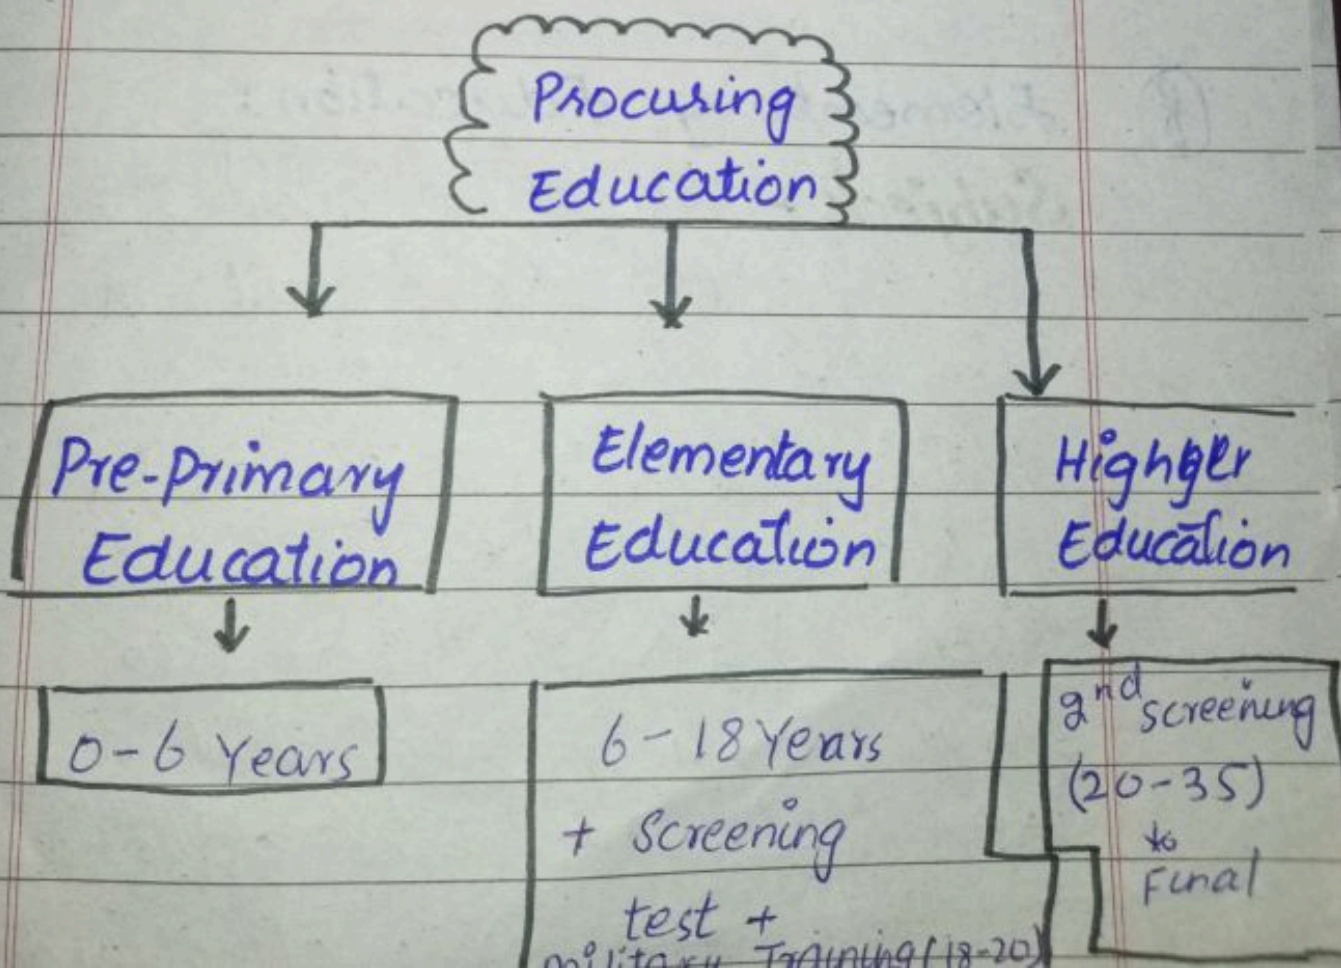 Procuring
Education
Pre-primary
Education
Elementary
Education
Higher
Education
0-6 Years
6-18 Years
+ Screening
test +
Military Training (18-20)
2nd screening
(20-35)
to
Final